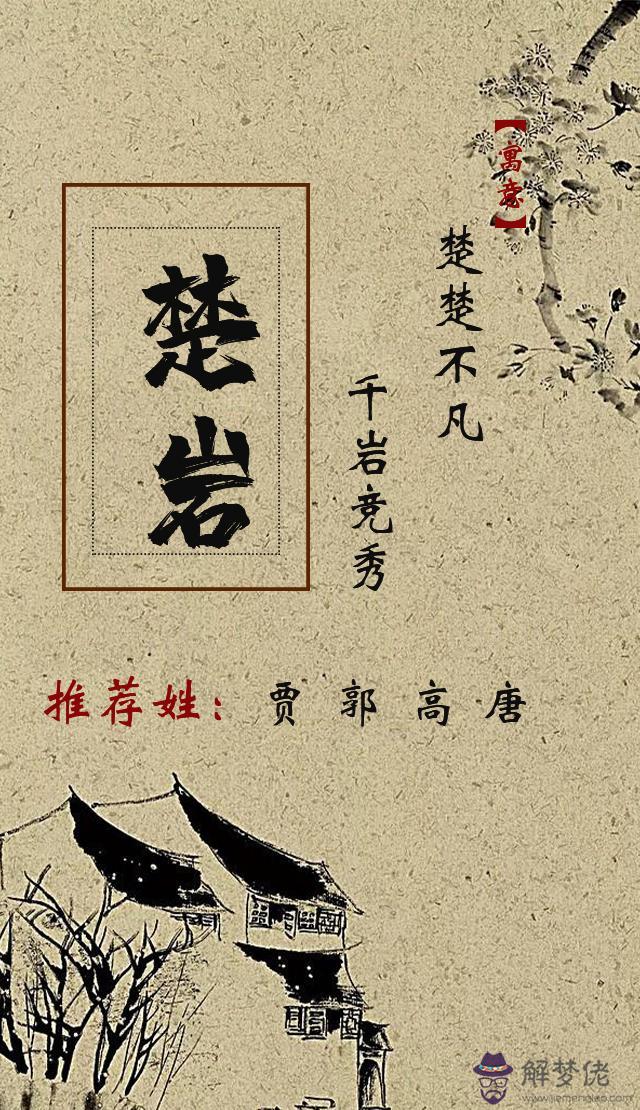 【寓意】
楚楚不凡
千岩竞秀
楚岩
推荐姓：贾 郭 高 唐
解梦佬
www.jiemenglao.com